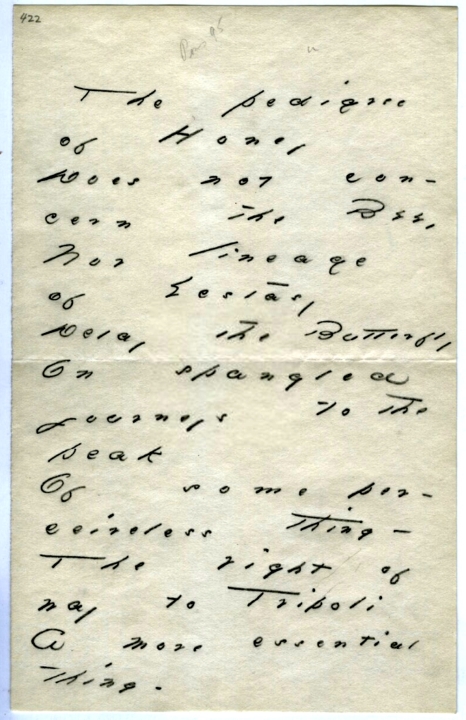 422
The pedigree
of Honey
Does not con-
cern the Bee,
Nor lineage
of Ecstasy
Delay the Butterfly
On spangled
journeys to the
peak
Of some per-
ceiveless Thing -
The right of
way to Tripoli
A more essential
thing.